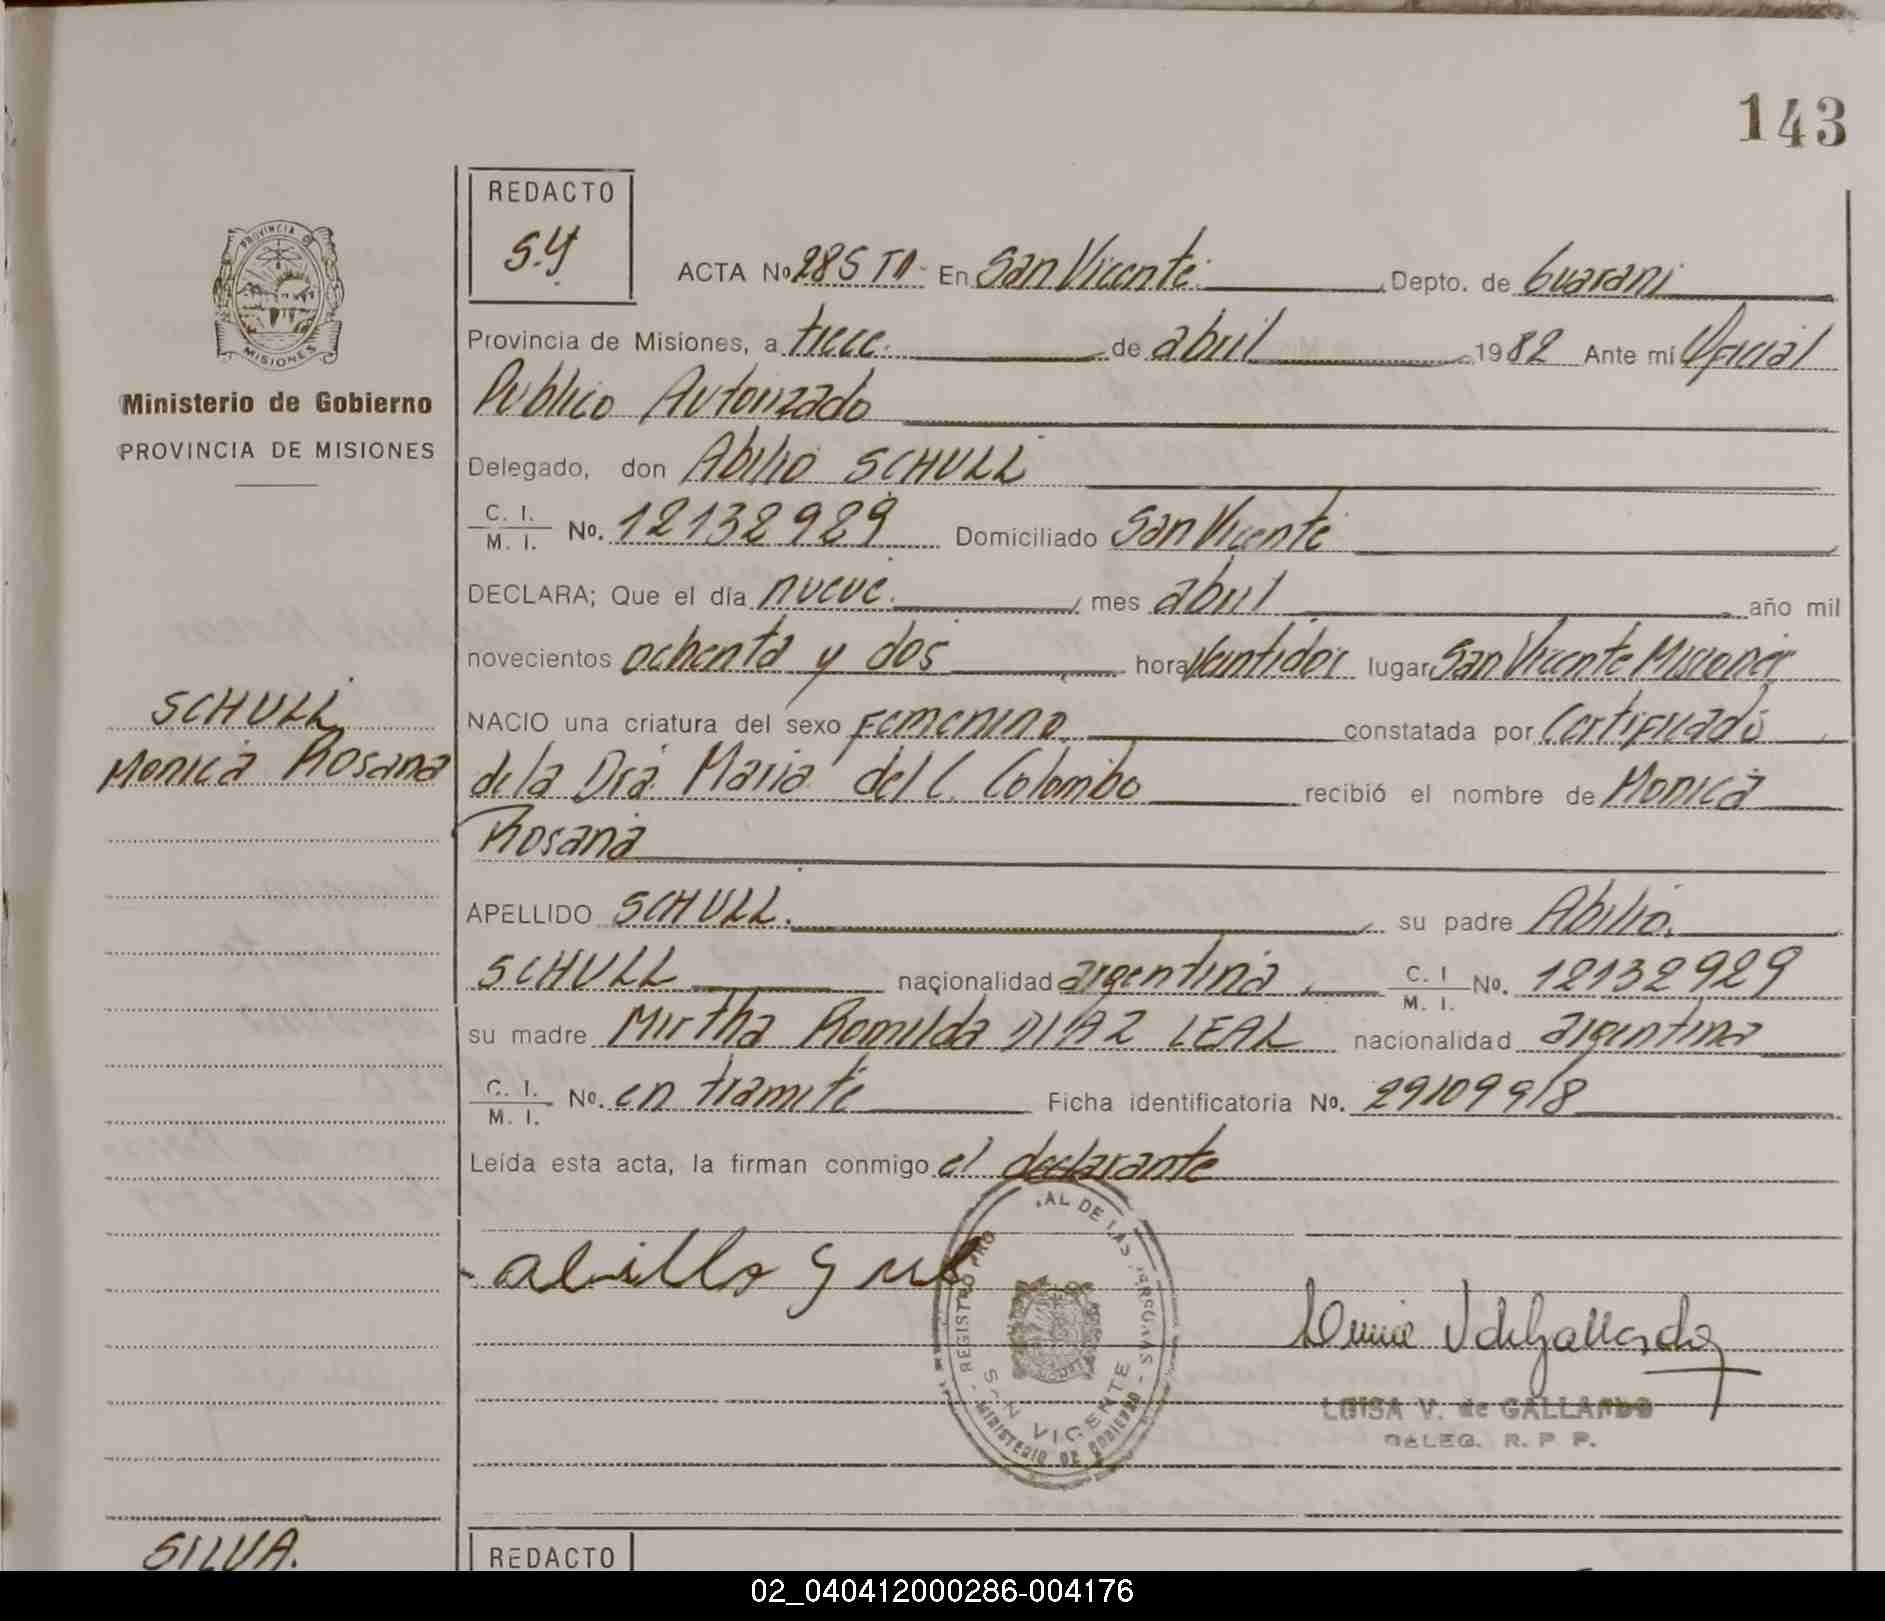 143
REDACTO
S.Y
ACTA No 285 TI - En San Vicente. Depto. de Guarani
Provincia de Misiones, a trece. de abril 1982 Ante mí Oficial
Publico Autorizado
Delegado, don Abilio SCHULL
C. I. / M. I. No. 12132929 Domiciliado San Vicente
DECLARA; Que el día nueve. mes abril año mil
novecientos ochenta y dos hora veintidos lugar San Vicente Misiones
NACIO una criatura del sexo Femenino constatada por Certificado
de la Dra. Maria del C. Colombo recibió el nombre de Monica
Rosana
APELLIDO SCHULL. su padre Abilio
SCHULL nacionalidad argentina C. I / M. I. No. 12132929
su madre Mirtha Romilda DIAZ LEAL nacionalidad argentina
C. I. / M. I. No. en tramite Ficha identificatoria No. 29109918
Leída esta acta, la firman conmigo el declarante
PROVINCIA DE
MISIONES
Ministerio de Gobierno
PROVINCIA DE MISIONES
SCHULL
Monica Rosana
REGISTRO PRO AL DE LAS PERSONAS
SAN VICENTE
MINISTERIO DE GOBIERNO
LUISA V. de GALLARDO
DELEG. R. P. P.
SILVA.
REDACTO
02_040412000286-004176